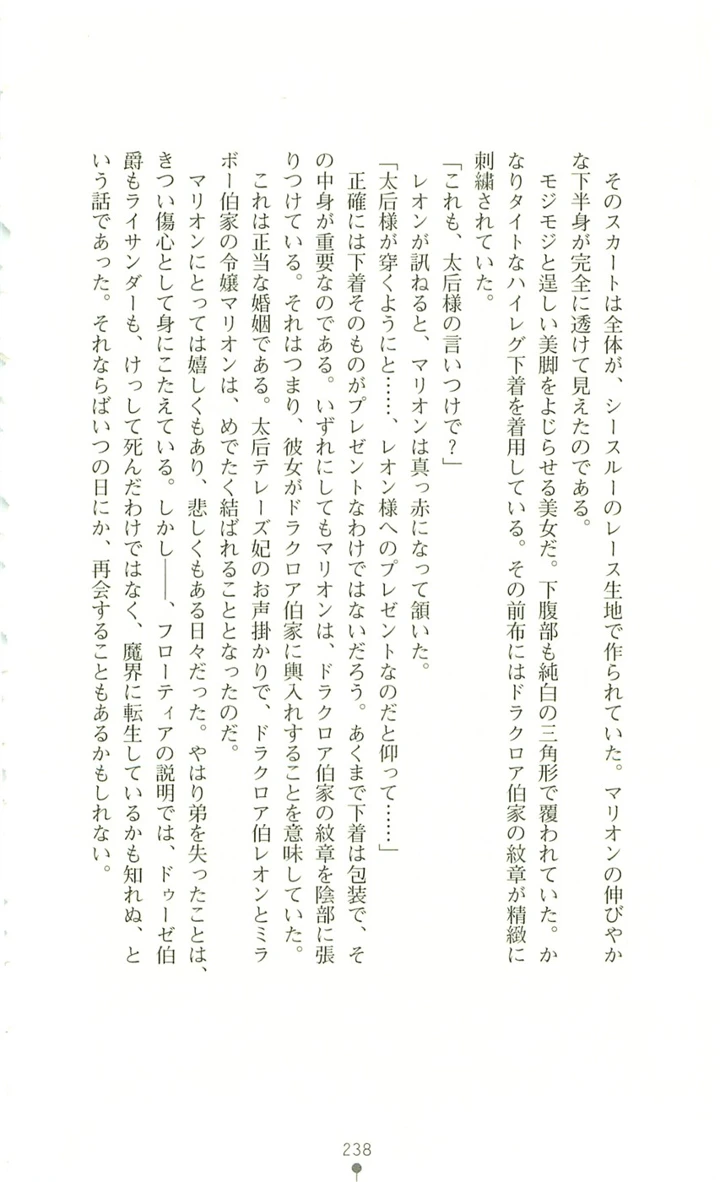 そのスカートは全体が、シースルーのレース生地で作られていた。マリオンの伸びやか
な下半身が完全に透けて見えたのである。
モジモジと逞しい美脚をよじらせる美女だ。下腹部も純白の三角形で覆われていた。か
なりタイトなハイレグ下着を着用している。その前布にはドラクロア伯家の紋章が精緻に
刺繍されていた。
「これも、太后様の言いつけで？」
レオンが訊ねると、マリオンは真っ赤になって頷いた。
「太后様が穿くようにと……、レオン様へのプレゼントなのだと仰って……」
正確には下着そのものがプレゼントなわけではないだろう。あくまで下着は包装で、そ
の中身が重要なのである。いずれにしてもマリオンは、ドラクロア伯家の紋章を陰部に張
りつけている。それはつまり、彼女がドラクロア伯家に輿入れすることを意味していた。
これは正当な婚姻である。太后テレーズ妃のお声掛かりで、ドラクロア伯レオンとミラ
ボー伯家の令嬢マリオンは、めでたく結ばれることとなったのだ。
マリオンにとっては嬉しくもあり、悲しくもある日々だった。やはり弟を失ったことは、
きつい傷心として身にこたえている。しかし――、フローティアの説明では、ドゥーゼ伯
爵もライサンダーも、けっして死んだわけではなく、魔界に転生しているかも知れぬ、と
いう話であった。それならばいつの日にか、再会することもあるかもしれない。
238